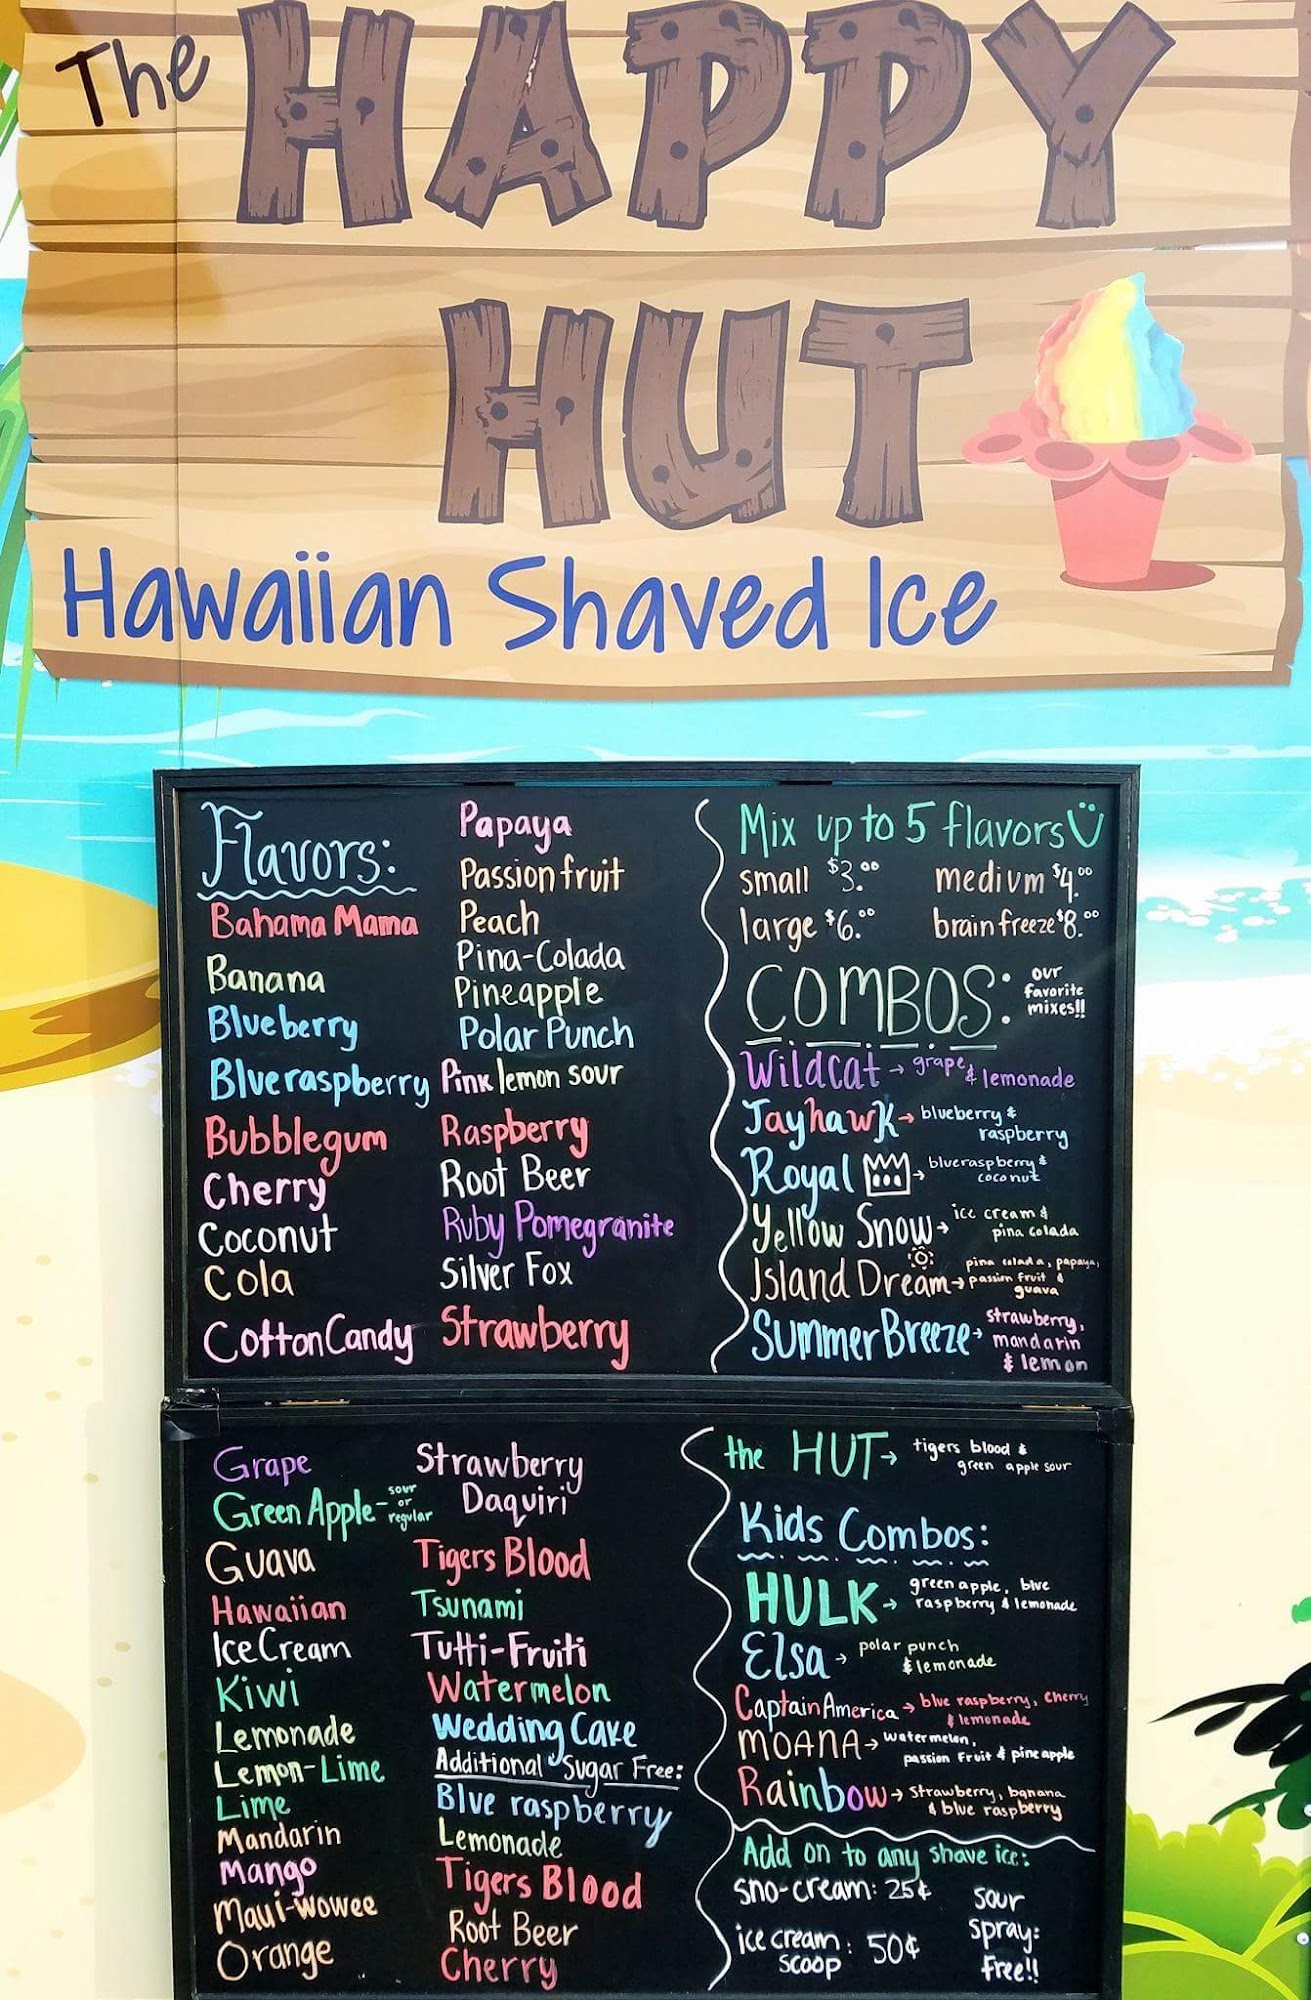 The HAPPY
HUT
Hawaiian Shaved Ice
Flavors:
Bahama Mama
Banana
Blueberry
Blueraspberry
Bubblegum
Cherry
Coconut
Cola
Cotton Candy
Papaya
Passion fruit
Peach
Pina-Colada
Pineapple
Polar Punch
Pink lemon sour
Raspberry
Root Beer
Ruby Pomegranite
Silver Fox
Strawberry
Mix up to 5 flavors
small $3.00 medium $4.00
large $6.00 brain freeze $8.00
COMBOS: our
favorite
mixes!!
Wildcat → grape &
lemonade
Jayhawk → blueberry &
raspberry
Royal → blueraspberry &
coconut
Yellow Snow → ice cream &
pina colada
Island Dream → pina colada, papaya,
passion fruit &
guava
Summer Breeze → strawberry,
mandarin
& lemon
Grape
Green Apple - sour
or
regular
Guava
Hawaiian
Ice Cream
Kiwi
Lemonade
Lemon-Lime
Lime
Mandarin
Mango
Maui-wowee
Orange
Strawberry
Daquiri
Tigers Blood
Tsunami
Tutti-Fruiti
Watermelon
Wedding Cake
Additional Sugar Free:
Blue raspberry
Lemonade
Tigers Blood
Root Beer
Cherry
the HUT → tigers blood &
green apple sour
Kids Combos:
HULK → green apple, blue
raspberry & lemonade
Elsa → polar punch
& lemonade
Captain America → blue raspberry, cherry
& lemonade
MOANA → watermelon,
passion fruit & pineapple
Rainbow → strawberry, banana
& blue raspberry
Add on to any shave ice:
sno-cream: 25¢
ice cream
scoop : 50¢
sour
spray:
free!!